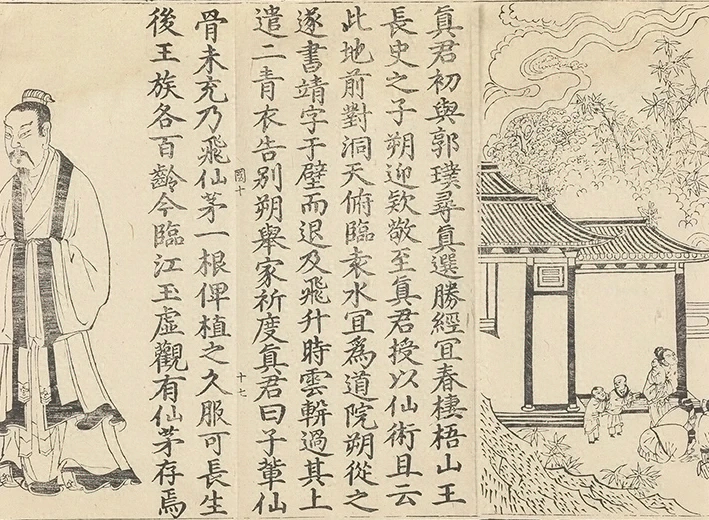 真君初與郭璞尋真選勝經宜春棲梧山王
長史之子朔迎欵敬至真君授以仙術且云
此地前對洞天俯臨袁水宜爲道院朔從之
遂書靖字于壁而退及飛升時雲軿過其上
遣二青衣告别朔舉家祈度真君曰子輩仙
圖十
十七
骨未充乃飛仙茅一根俾植之久服可長生
後王族各百齡今臨江玉虛觀有仙茅存焉